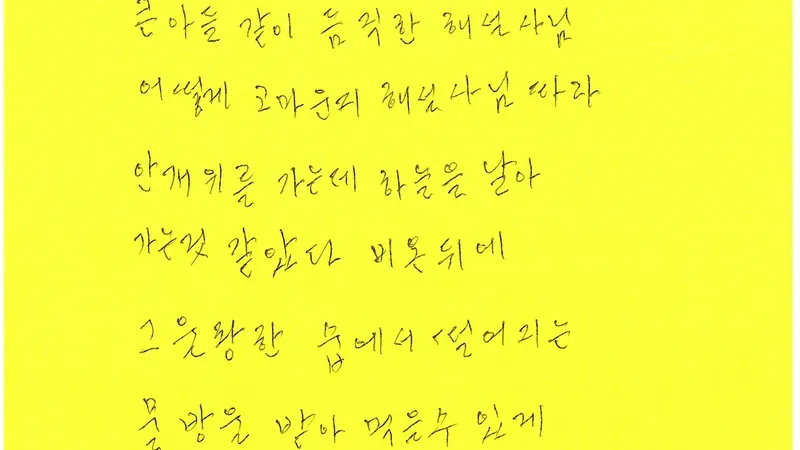 큰아들 같이 듬직한 해설사님
어떻게 고마운지 해설사님 따라
안개위를 가는데 하늘을 날아
가는것 같았다 비온뒤에
그 웃창한 숲에서 떨어지는
물방울 받아 먹을수 있게